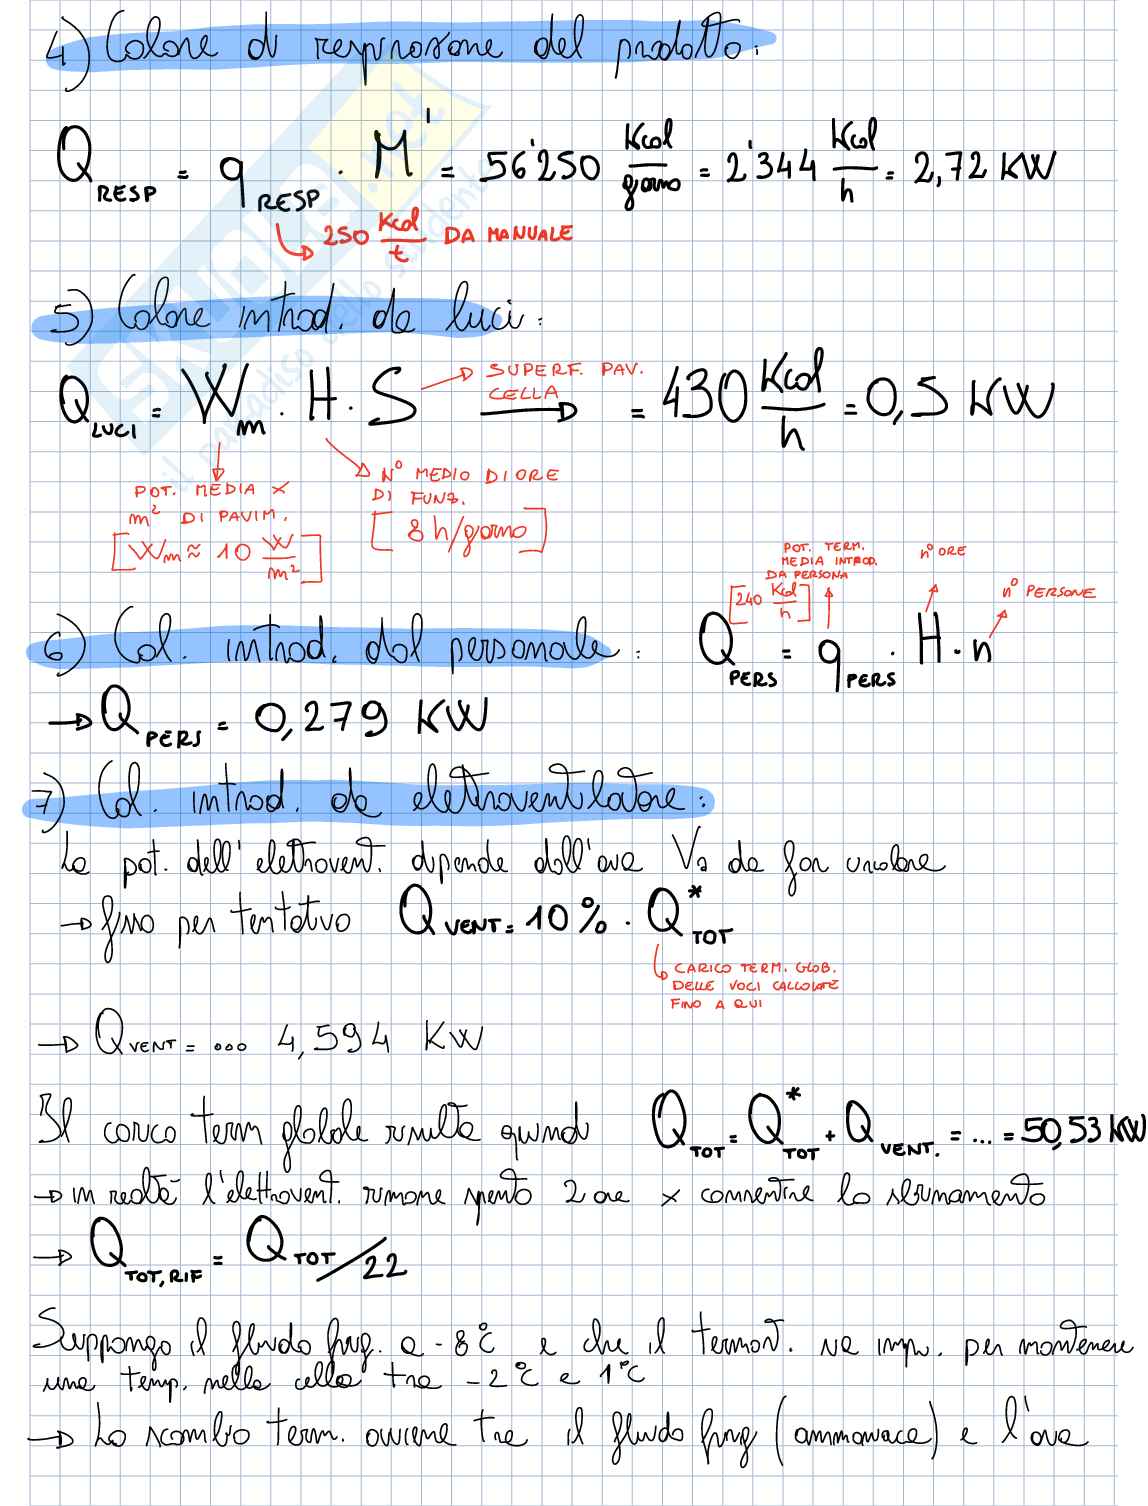 4) Calore di respirazione del prodotto:
Q RESP = q RESP · M' = 56'250 Kcal/giorno = 2'344 Kcal/h = 2,72 KW
250 Kcal/t DA MANUALE
5) Calore introd. da luci:
Q LUCI = Wm · H · S = 430 Kcal/h = 0,5 KW
SUPERF. PAV.
CELLA
POT. MEDIA x
m² DI PAVIM.
[Wm ≈ 10 W/m²]
N° MEDIO DI ORE
DI FUNZ.
[8 h/giorno]
6) Cal. introd. dal personale:
Q PERS = q PERS · H · n
POT. TERM.
MEDIA INTROD.
DA PERSONA
[240 Kcal/h]
n° ORE
n° PERSONE
→ Q PERS = 0,279 KW
7) Cal. introd. da elettroventilatore:
La pot. dell'elettrovent. dipende dall'aria Va da far circolare
→ fisso per tentativo Q VENT = 10% · Q* TOT
CARICO TERM. GLOB.
DELLE VOCI CALCOLATE
FINO A QUI
→ Q VENT = ... 4,594 KW
Il carico term globale risulta quindi Q TOT = Q* TOT + Q VENT. = ... = 50,53 KW
→ in realtà l'elettrovent. rimane spento 2 ore x consentire lo sbrinamento
→ Q TOT,RIF = Q TOT/22
Suppongo il fluido frig. a -8°C e che il termost. va imp. per mantenere
una temp. nella cella tra -2°C e 1°C
→ Lo scambio term. avviene tra il fluido frig (ammoniaca) e l'aria
SKUOLA.net
il paradiso dello studente